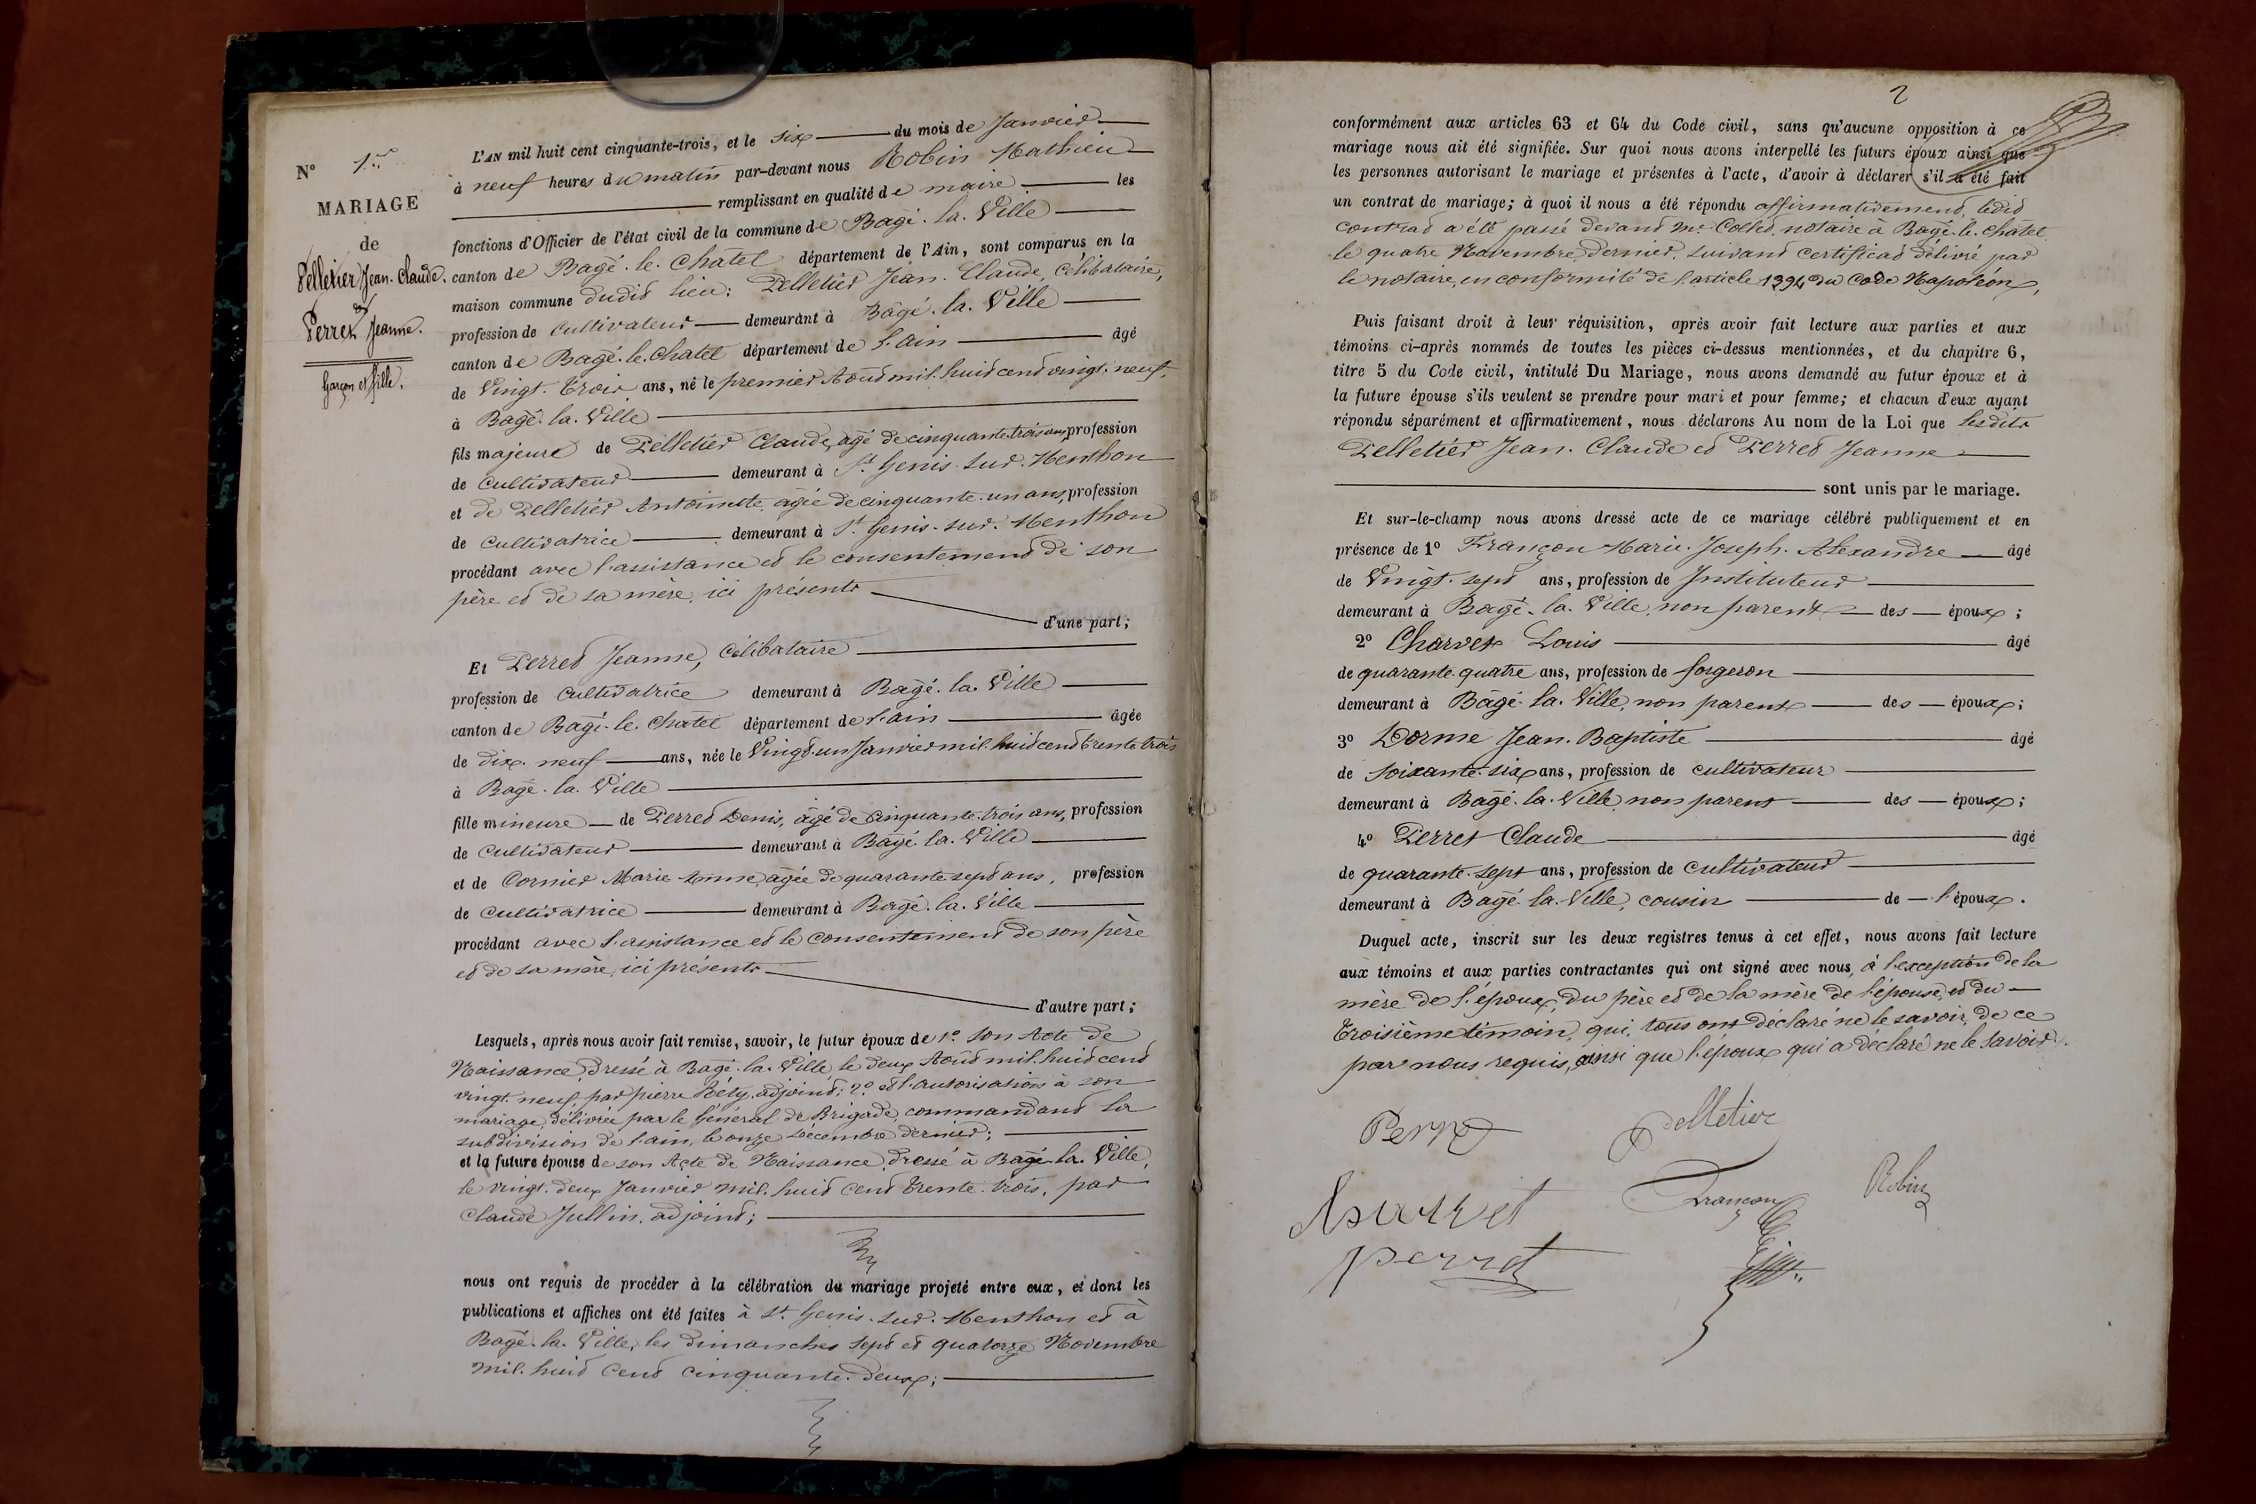 N° 1er
MARIAGE
de
Pelletier Jean-Claude.
et
Perret Jeanne.
Garçon et fille.
L'AN mil huit cent cinquante-trois, et le six du mois de Janvier
à neuf heures du matin par-devant nous Robin Mathieu
remplissant en qualité de maire les
fonctions d'Officier de l'état civil de la commune de Bagé-la-Ville
canton de Bagé-le-Chatel département de l'Ain, sont comparus en la
maison commune dudit lieu: Pelletier Jean-Claude, Célibataire,
profession de Cultivateur demeurant à Bagé-la-Ville
canton de Bagé-le-Chatel département de l'ain âgé
de Vingt-trois ans, né le premier Août mil-huit cent vingt-neuf,
à Bagé-la-Ville
fils majeur de Pelletier Claude, âgé de cinquante-trois ans, profession
de Cultivateur demeurant à St Genis-sur-Menthon
et de Pelletier Antoinette, âgée de cinquante-un ans, profession
de Cultivatrice demeurant à St Genis-sur-Menthon
procédant avec l'assistance et le consentement de son
père et de sa mère, ici présents
d'une part;
Et Perret Jeanne, Célibataire
profession de Cultivatrice demeurant à Bagé-la-Ville
canton de Bagé-le-Chatel département de l'ain âgée
de dix-neuf ans, née le Vingt-un Janvier mil-huit cent trente-trois
à Bagé-la-Ville
fille mineure de Perret Denis, âgé de Cinquante-trois ans, profession
de Cultivateur demeurant à Bagé-la-Ville
et de Cornier Marie-Anne, âgée de quarante-sept ans, profession
de Cultivatrice demeurant à Bagé-la-Ville
procédant avec l'assistance et le Consentement de son père
et de sa mère, ici présents
d'autre part;
Lesquels, après nous avoir fait remise, savoir, le futur époux de 1° son Acte de
Naissance, dressé à Bagé-la-Ville, le deux Août mil-huit cent
vingt-neuf, par pierre Réty, adjoint; 2° et l'autorisation à son
mariage, délivrée par le Général de Brigade, commandant la
subdivision de l'ain, le onze Décembre dernier;
et la future épouse de son Acte de Naissance, dressé à Bagé-la-Ville,
le vingt-deux Janvier mil-huit cent trente-trois, par
Claude Jullin, adjoint;
nous ont requis de procéder à la célébration du mariage projeté entre eux, et dont les
publications et affiches ont été faites à St Genis-sur-Menthon et à
Bagé-la-Ville, les dimanches sept et quatorze Novembre
mil-huit Cent Cinquante-deux;
2
conformément aux articles 63 et 64 du Code civil, sans qu'aucune opposition à ce
mariage nous ait été signifiée. Sur quoi nous avons interpellé les futurs époux ainsi que
les personnes autorisant le mariage et présentes à l'acte, d'avoir à déclarer s'il a été fait
un contrat de mariage; à quoi il nous a été répondu affirmativement, ledit
contrat a été passé devant Me Collet, notaire à Bagé-le-Châtel
le quatre Novembre, dernier, suivant certificat délivré par
le notaire, en conformité de l'article 1394 du Code Napoléon,
Puis faisant droit à leur réquisition, après avoir fait lecture aux parties et aux
témoins ci-après nommés de toutes les pièces ci-dessus mentionnées, et du chapitre 6,
titre 5 du Code civil, intitulé Du Mariage, nous avons demandé au futur époux et à
la future épouse s'ils veulent se prendre pour mari et pour femme; et chacun d'eux ayant
répondu séparément et affirmativement, nous déclarons Au nom de la Loi que lesdits
Pelletier Jean-Claude et Perret Jeanne
sont unis par le mariage.
Et sur-le-champ nous avons dressé acte de ce mariage célébré publiquement et en
présence de 1° Françon Marie-Joseph-Alexandre âgé
de Vingt-sept ans, profession de Instituteur
demeurant à Bagé-la-Ville, non parent des époux;
2° Charvet Louis âgé
de quarante-quatre ans, profession de forgeron
demeurant à Bagé-la-Ville, non parent des époux;
3° Dorme Jean-Baptiste âgé
de soixante-six ans, profession de cultivateur
demeurant à Bagé-la-Ville, non parent des époux;
4° Perret Claude âgé
de quarante-sept ans, profession de Cultivateur
demeurant à Bagé-la-Ville, cousin de l'époux.
Duquel acte, inscrit sur les deux registres tenus à cet effet, nous avons fait lecture
aux témoins et aux parties contractantes qui ont signé avec nous, à l'exception de la
mère de l'époux, du père et de la mère de l'épouse, et du
troisième témoin, qui, tous ont déclaré ne le savoir, de ce
par nous requis, ainsi que l'époux qui a déclaré ne le savoir.
Perret Pelletier
Charvet Françon Robin
perret